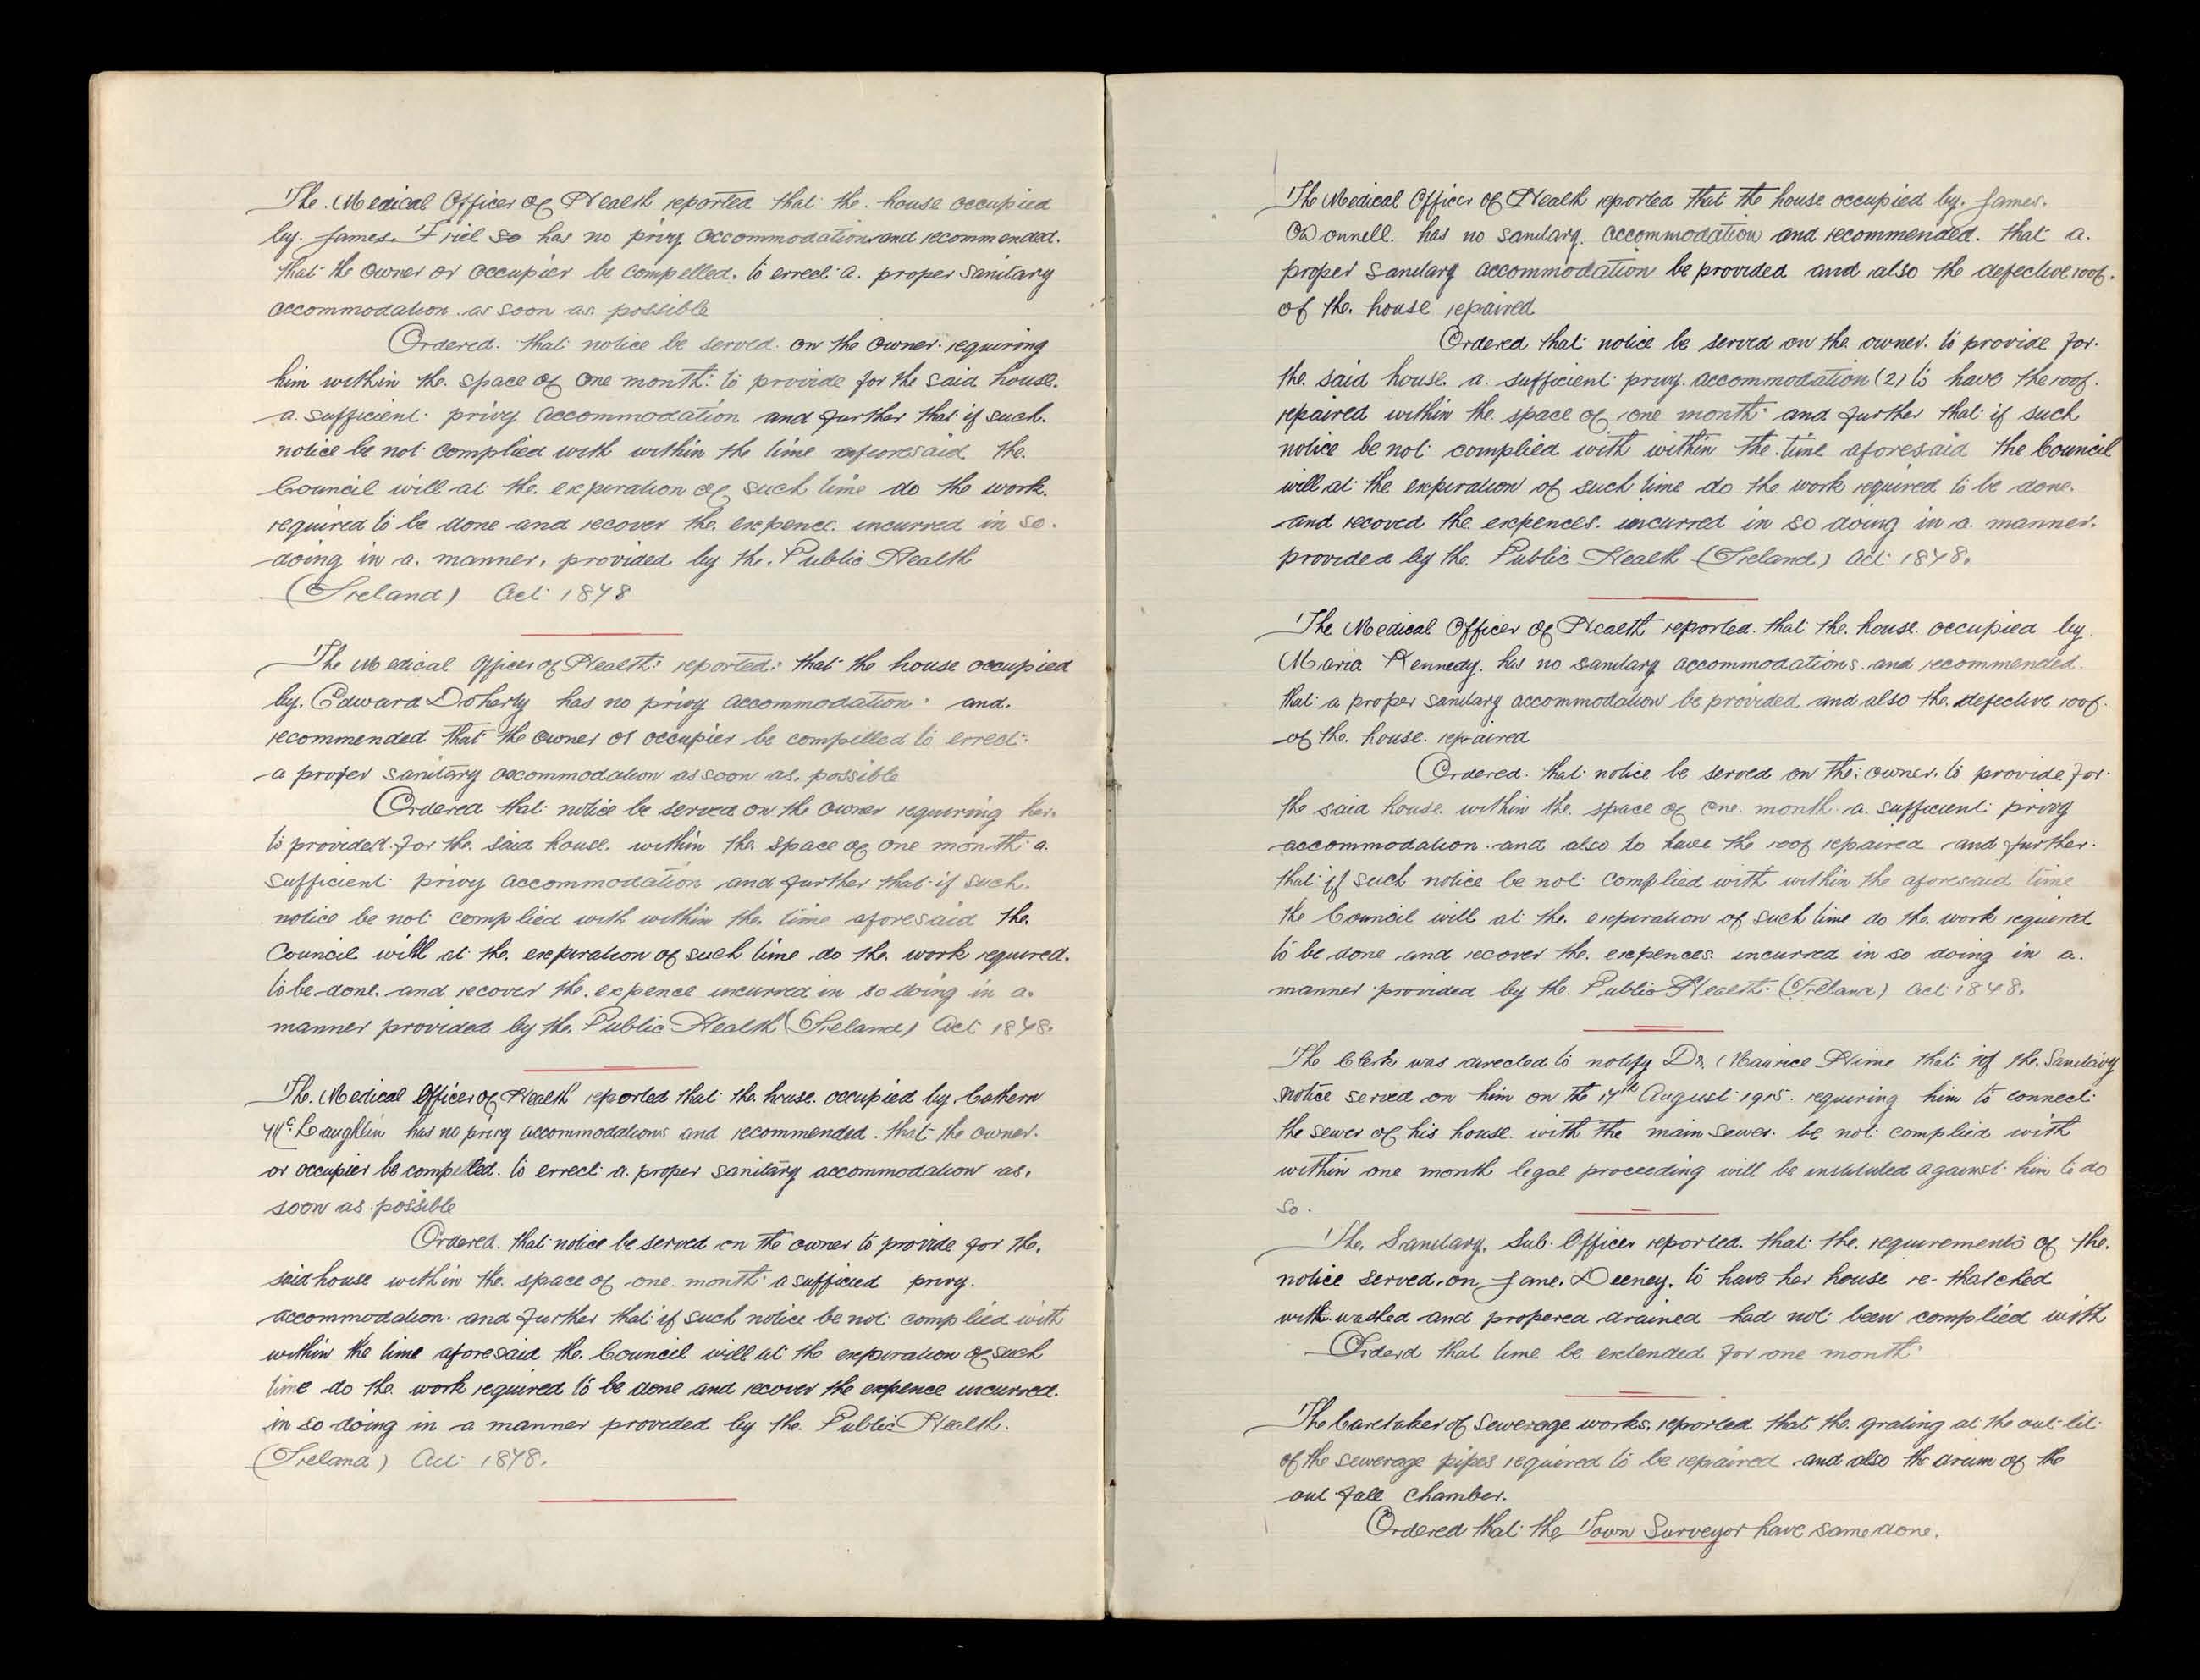 The Medical Officer of Health reported that the house occupied
by James Friel so has no privy accommodation and recommended
that the owner or occupier be compelled to errect a proper sanitary
accommodation as soon as possible
Ordered that notice be served on the owner requiring
him within the space of one month to provide for the said house
a sufficient privy accommodation and further that if such
notice be not complied with within the time aforesaid the
Council will at the expiration of such time do the work
required to be done and recover the expence incurred in so
doing in a manner provided by the Public Health
(Ireland) Act 1878
The Medical Officer of Health reported that the house occupied
by Edward Doherty has no privy accommodation and
recommended that the owner or occupier be compelled to errect
a proper sanitary accommodation as soon as possible
Ordered that notice be served on the owner requiring her
to provided for the said house within the space of one month a
sufficient privy accommodation and further that if such
notice be not complied with within the time aforesaid the
Council will at the expiration of such time do the work required
to be done and recover the expence incurred in so doing in a
manner provided by the Public Health (Ireland) Act 1878.
The Medical Officer of Health reported that the house occupied by Cathern
McLaughlin has no privy accommodations and recommended that the owner
or occupier be compelled to errect a proper sanitary accommodation as
soon as possible
Ordered that notice be served on the owner to provide for the
said house within the space of one month a sufficied privy
accommodation and further that if such notice be not complied with
within the time aforesaid the Council will at the expiration of such
time do the work required to be done and recover the expence incurred
in so doing in a manner provided by the Public Health
(Ireland) Act 1878.
The Medical Officer of Health reported that the house occupied by James
O'Donnell has no sanitary accommodation and recommended that a
proper sanitary accommodation be provided and also the defective roof
of the house repaired
Ordered that notice be served on the owner to provide for
the said house a sufficient privy accommodation (2) to have the roof
repaired within the space of one month and further that if such
notice be not complied with within the time aforesaid the Council
will at the expiration of such time do the work required to be done
and recoved the expences incurred in so doing in a manner
provided by the Public Health (Ireland) Act 1878.
The Medical Officer of Health reported that the house occupied by
Maria Kennedy has no sanitary accommodations and recommended
that a proper sanitary accommodation be provided and also the defective roof
of the house repaired
Ordered that notice be served on the owner to provide for
the said house within the space of one month a sufficient privy
accommodation and also to have the roof repaired and further
that if such notice be not complied with within the aforesaid time
the Council will at the expiration of such time do the work required
to be done and recover the expences incurred in so doing in a
manner provided by the Public Health (Ireland) Act 1878.
The Clerk was directed to notify Dr. Maurice Hime that if the Sanitary
notice served on him on the 17th August 1915 requiring him to connect
the sewer of his house with the main sewer be not complied with
within one month legal proceeding will be instituted against him to do
so.
The Sanitary Sub Officer reported that the requirements of the
notice served on Jane Deeney to have her house re-thatched
with washed and propered drained had not been complied with
Orderd that time be extended for one month
The Caretaker of Sewerage works reported that the grating at the out let
of the sewerage pipes required to be repaired and also the drum of the
out fall chamber.
Ordered that the Town Surveyor have same done.